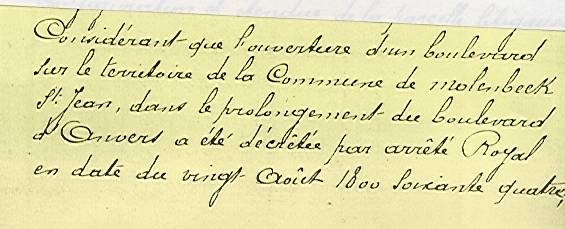 Considérant que l'ouverture d'un boulevard
sur le territoire de la Commune de molenbeek
St. Jean, dans le prolongement du boulevard
d'Anvers a été décrétée par arrêté Royal
en date du vingt Août 1800 soixante quatre,